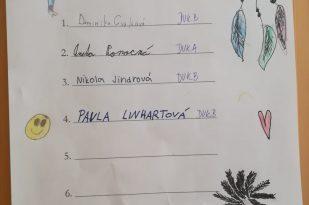 1. Dominika DVK.B
2. DVK.A
3. Nikola Jindrová DVK.B
4. PAVLA LINHARTOVÁ DVK.B
5.
6.